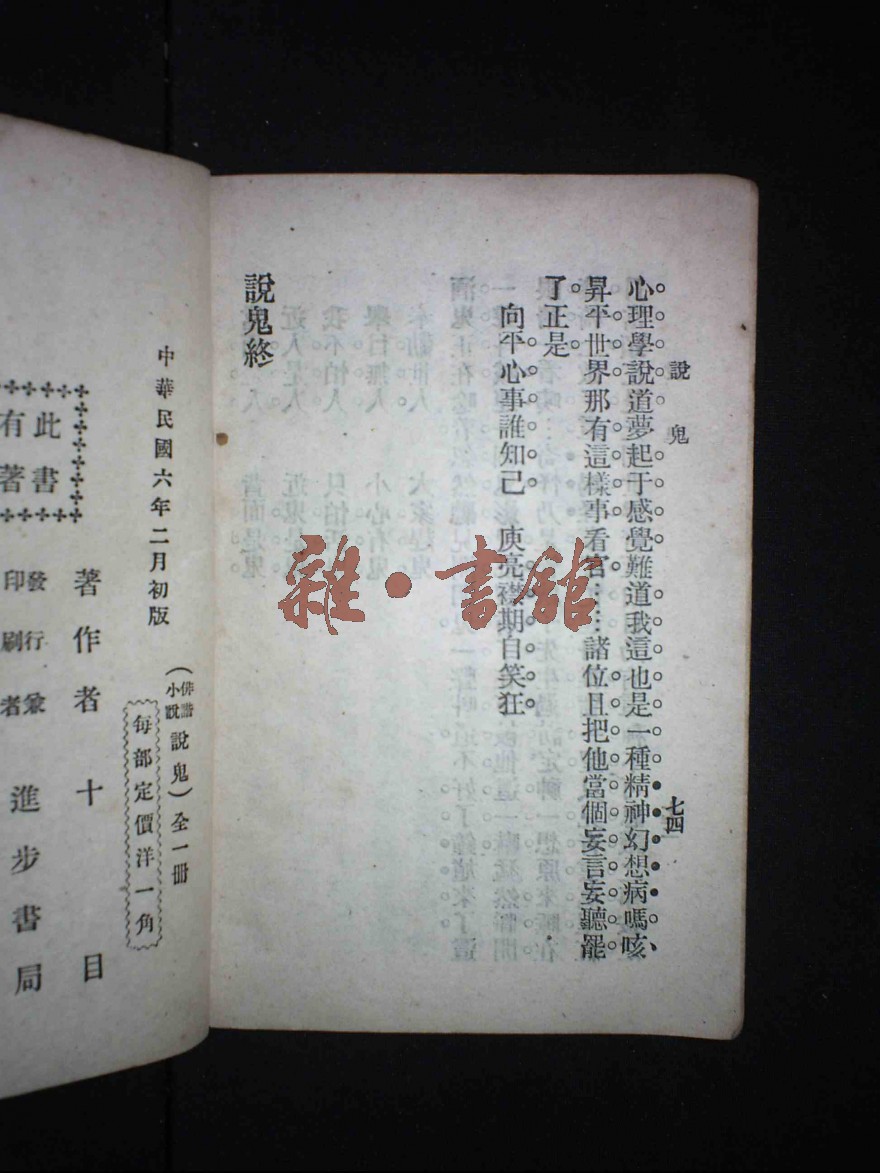 說鬼
七四
心理學說道夢起于感覺難道我這也是一種精神幻想病嗎咳
昇平世界那有這樣事看官……諸位且把他當個妄言妄聽罷
了正是
一向平心事誰知己 庾亮襟期自笑狂
說鬼終
雜·書館
中華民國六年二月初版
(俳諧小說說鬼)全一冊
每部定價洋一角
著作者 十目
發行兼
印刷者 進步書局
此書
有著